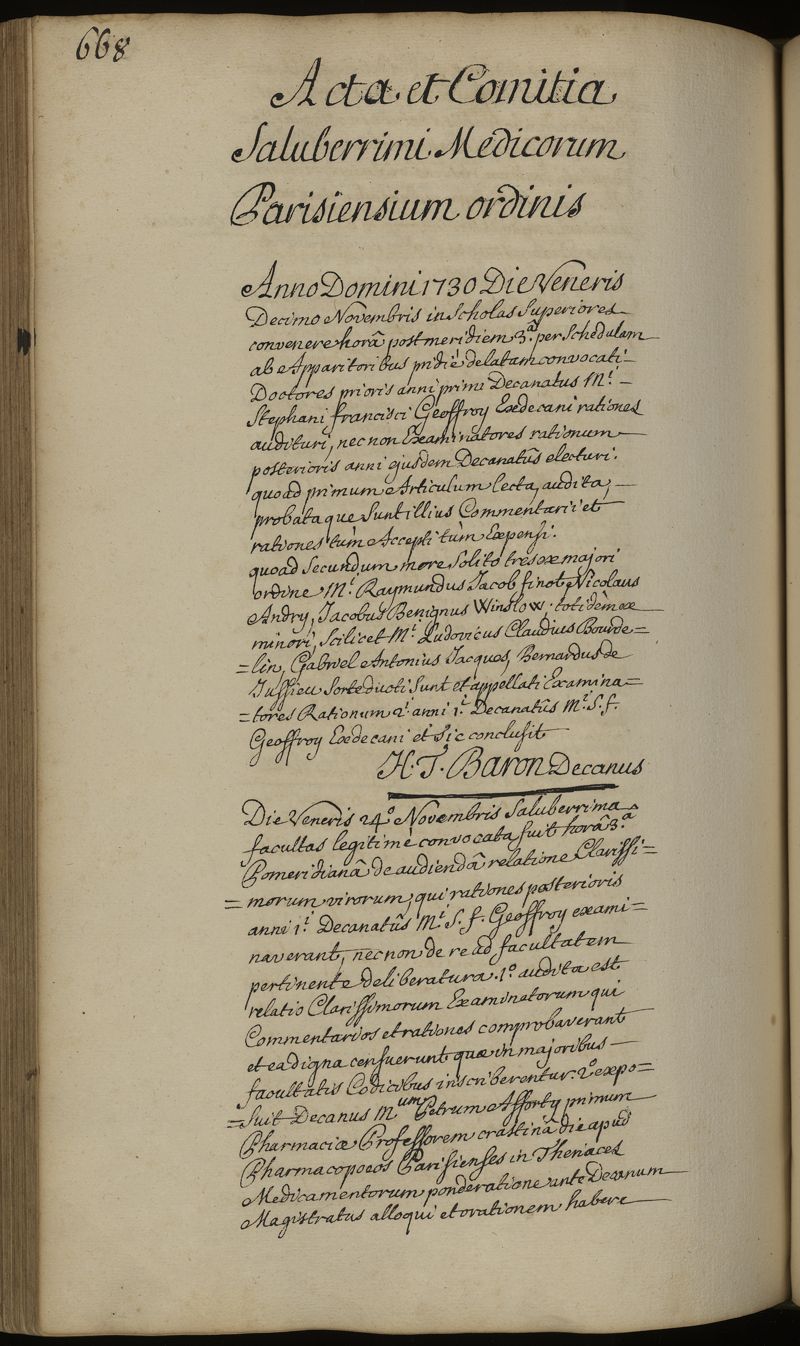 668
Acta et Comitia
Saluberrimi Medicorum
Parisiensium ordinis
Anno Domini 1730 Die Veneris
Decimo Novembris in Scholas Superiores
convenere horâ postmeridiem 3.ª per Schedulam
ab Apparitoribus pridiè delatam convocati
Doctores prioris anni primi Decanatus M.ri
Stephani francisci Geoffroy Exdecani rationes
audituri, nec non Examinatores rationum
posterioris anni ejusdem Decanatûs electuri.
quoad primum Articulum lecta, audita,
probataque Sunt illius Commentarii et
rationes tùm Accepti tùm Expensi.
quoad Secundum more Solito tres ex majori
ordine M.r Raymundus Jacob finot Nicolaus
Andry, Jacobus Benignus Winslow. totidèm ex
minori, Scilicet M.r Ludovicus Claudius Bourde=
=lin, Gabriel Antonius Jacques, Bernardus de
Jussieu Sorte ducti Sunt et appellati Examina=
=tores Rationum 2.i anni 1.i Decanatûs M.ri S. f.
Geoffroy Exdecani et Sic conclusit
H. T. Baron Decanus
Die Veneris 24º Novembris Saluberrima
facultas legitimè convocata fuit horâ 3.â
Pomeridianâ de audiendâ relatione Clarissi=
=morum virorum, qui rationes posterioris
anni 1.i Decanatûs M.ri S. f. Geoffroy exami=
naverant, nec non de re ad facultatem
pertinente deliberatura. 1.º audita est
relatio Clarissimorum Examinatorum qui
Commentarios et rationes comprobaverant
et ea digna censuerunt quæ in majoribus
facultatis Codicibus inscriberentur. 2.º expo=
=suit Decanus M.um Petrum Afforty primum
Pharmaciæ Professorem crastinâ die apud
Pharmacopoeos Parisienses in Theriaces
Medicamentorum ponderatione ante Decanum
Magistratus alloqui et orationem habere